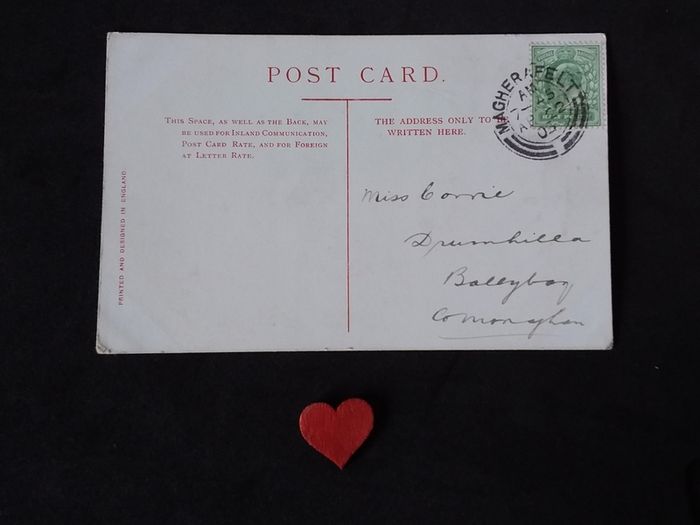 POST CARD.
THIS SPACE, AS WELL AS THE BACK, MAY
BE USED FOR INLAND COMMUNICATION,
POST CARD RATE, AND FOR FOREIGN
AT LETTER RATE.
THE ADDRESS ONLY TO BE
WRITTEN HERE.
MAGHERAFELT
PRINTED AND DESIGNED IN ENGLAND.
Miss Corrie
Drumhilla
Ballybay
Co Monaghan